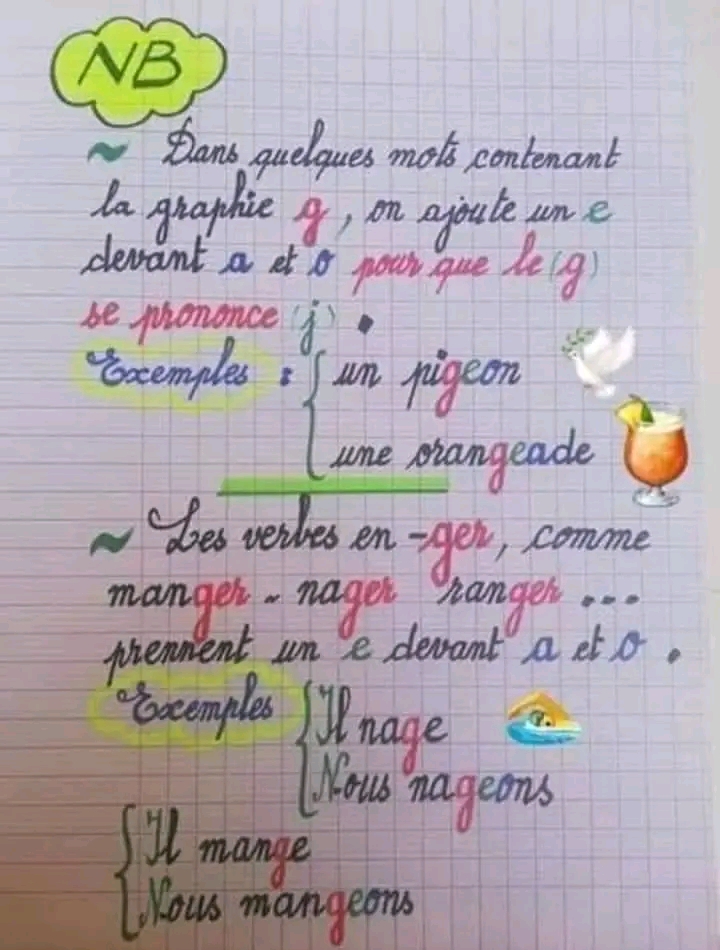 NB
~ Dans quelques mots contenant
la graphie g, on ajoute un e
devant a et o pour que le (g)
se prononce (j).
Exemples : { un pigeon
une orangeade
~ Les verbes en -ger, comme
manger - nager ranger ...
prennent un e devant a et o.
Exemples { Il nage
Nous nageons
{ Il mange
Nous mangeons